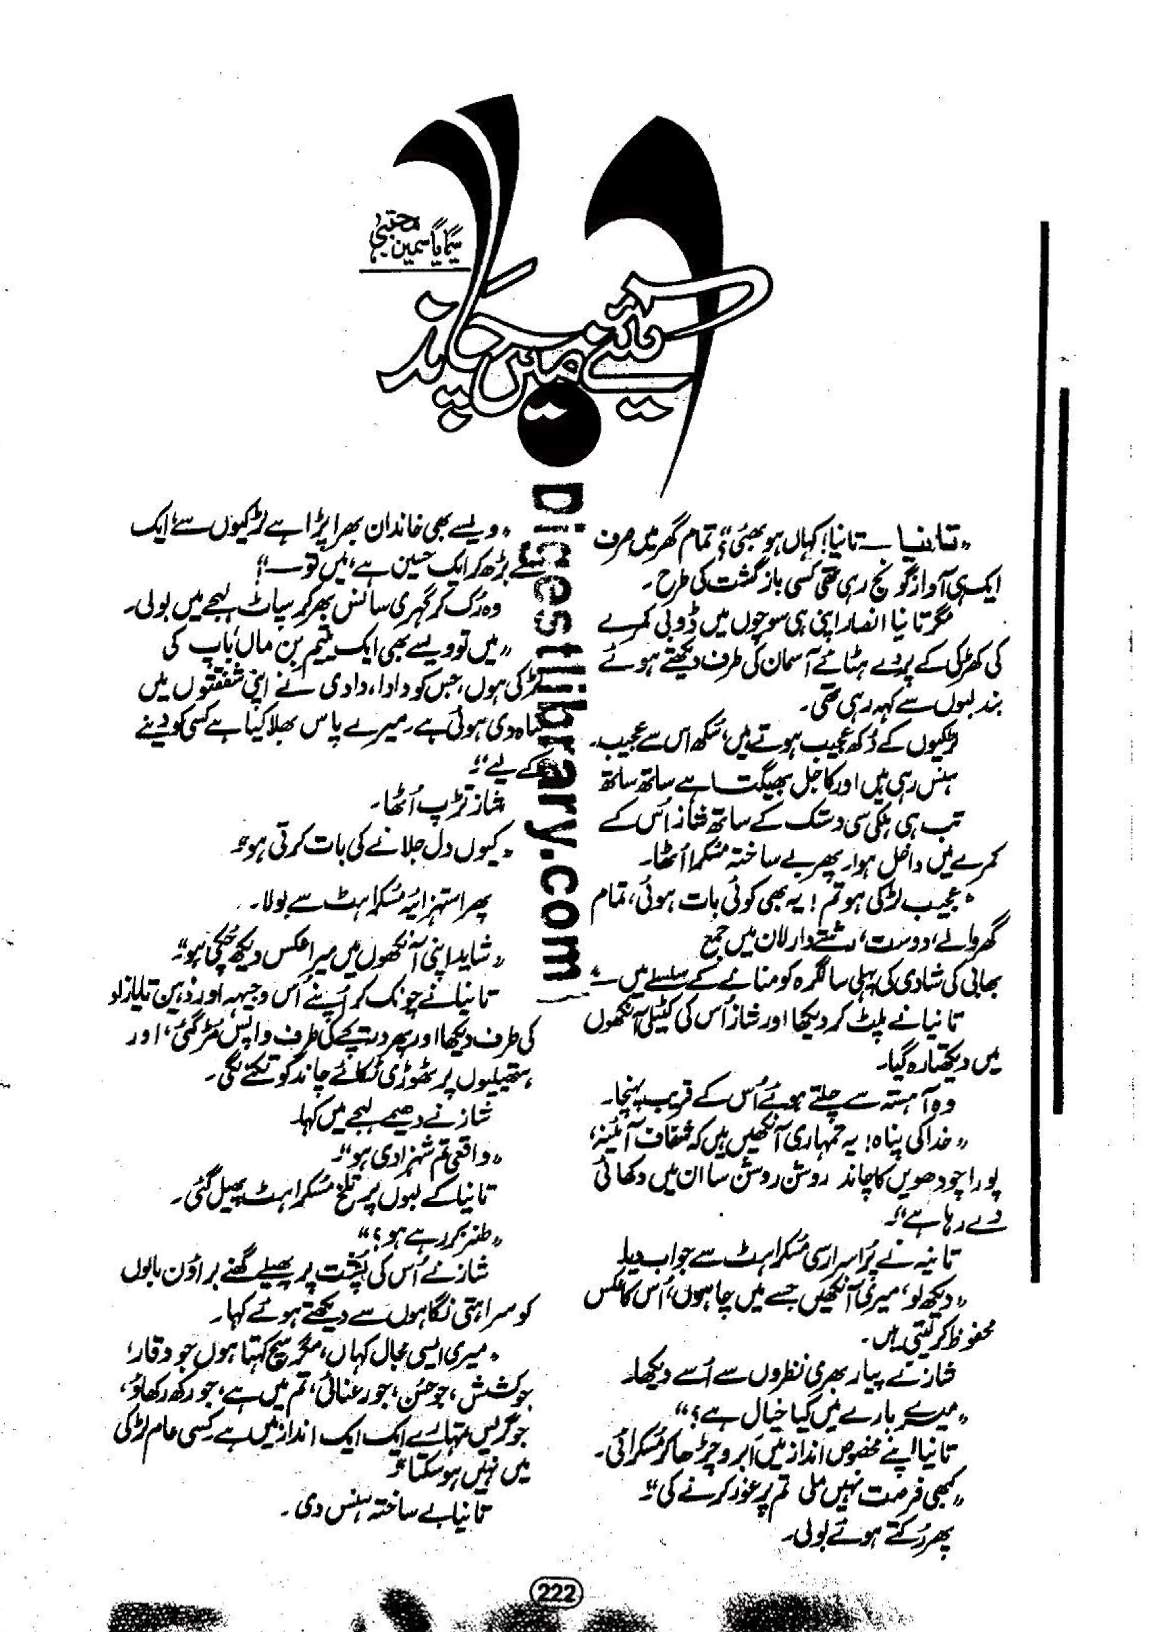 سیما یاسمین مجتبیٰ
آئینے میں چاند
"تانیا — تانیا! کہاں ہو بھئی؟" تمام گھر میں صرف
ایک ہی آواز گونج رہی تھی کسی بازگشت کی طرح۔
مگر تانیا انصار اپنی ہی سوچوں میں ڈوبی کمرے
کی کھڑکی کے پردے ہٹائے آسمان کی طرف دیکھتے ہوئے
بند لبوں سے کہہ رہی تھی۔
لڑکیوں کے دُکھ عجیب ہوتے ہیں، سُکھ اس سے عجیب۔
ہنس رہی ہیں اور کاجل بھیگتا ہے ساتھ ساتھ
تب ہی ہلکی سی دستک کے ساتھ شاز اُس کے
کمرے میں داخل ہوا۔ پھر بے ساختہ مسکرا اُٹھا۔
"عجیب لڑکی ہو تم! یہ بھی کوئی بات ہوئی، تمام
گھر والے، دوست، رشتے دار لان میں جمع
بھائی کی شادی کی پہلی سالگرہ کو منانے کے سلسلے میں —"
تانیا نے پلٹ کر دیکھا اور شاز اُس کی کٹیلی آنکھوں
میں دیکھتا رہ گیا۔
وہ آہستہ سے چلتے ہوئے اُس کے قریب پہنچا۔
"خدا کی پناہ! یہ تمہاری آنکھیں ہیں کہ شفاف آئینہ،
پورا چودھویں کا چاند روشن روشن سا ان میں دکھائی
دے رہا ہے"۔
تانیہ نے پُراسرار سی مُسکراہٹ سے جواب دیا۔
"دیکھ لو، میری آنکھیں جسے میں چاہوں، اُس کا عکس
محفوظ کر لیتی ہیں۔
شاز نے پیار بھری نظروں سے اُسے دیکھا۔
"میرے بارے میں کیا خیال ہے؟"
تانیا اپنے مخصوص انداز میں اَبرو چڑھا کر مُسکرائی۔
"کبھی فرصت نہیں ملی تم پر غور کرنے کی"۔
پھر رُکتے ہوئے بولی۔
"ویسے بھی خاندان بھرا پڑا ہے لڑکیوں سے، ایک
سے بڑھ کر ایک حسین ہے، میں تو —!"
وہ رک کر گہری سانس بھر کر سپاٹ لہجے میں بولی۔
"میں تو ویسے بھی ایک یتیم بن ماں باپ کی
لڑکی ہوں، جس کو دادا، دادی نے اپنی شفقتوں میں
پناہ دی ہوئی ہے۔ میرے پاس بھلا کیا ہے کسی کو دینے
کے لیے"۔
شاز تڑپ اُٹھا۔
"کیوں دل جلانے کی بات کرتی ہو"
پھر استہزائیہ مُسکراہٹ سے بولا۔
"شاید اپنی آنکھوں میں میرا عکس دیکھ چُکی ہو"۔
تانیا نے چونک کر اپنے اُس وجیہہ اور ذہین تایازاد
کی طرف دیکھا اور پھر دریچے کی طرف واپس مُڑ گئی، اور
ہتھیلیوں پر ٹھوڑی ٹکائے چاند کو تکنے لگی۔
شاز نے دھیمے لہجے میں کہا۔
"واقعی تم شہزادی ہو"۔
تانیا کے لبوں پر تلخ مُسکراہٹ پھیل گئی۔
"طنز کر رہے ہو؟"
شاز نے اُس کی پُشت پر پھیلے گھنے براؤن بالوں
کو سراہتی نگاہوں سے دیکھتے ہوئے کہا۔
"میری ایسی مجال کہاں، مگر سچ کہتا ہوں جو وقار،
جو کشش، جو حُسن، جو رعنائی، تم میں ہے، جو رکھ رکھاؤ،
جو گریس تمہارے ایک ایک انداز میں ہے کسی عام لڑکی
میں نہیں ہو سکتا"۔
تانیا بے ساختہ ہنس دی۔
Digestlibrary.com
222